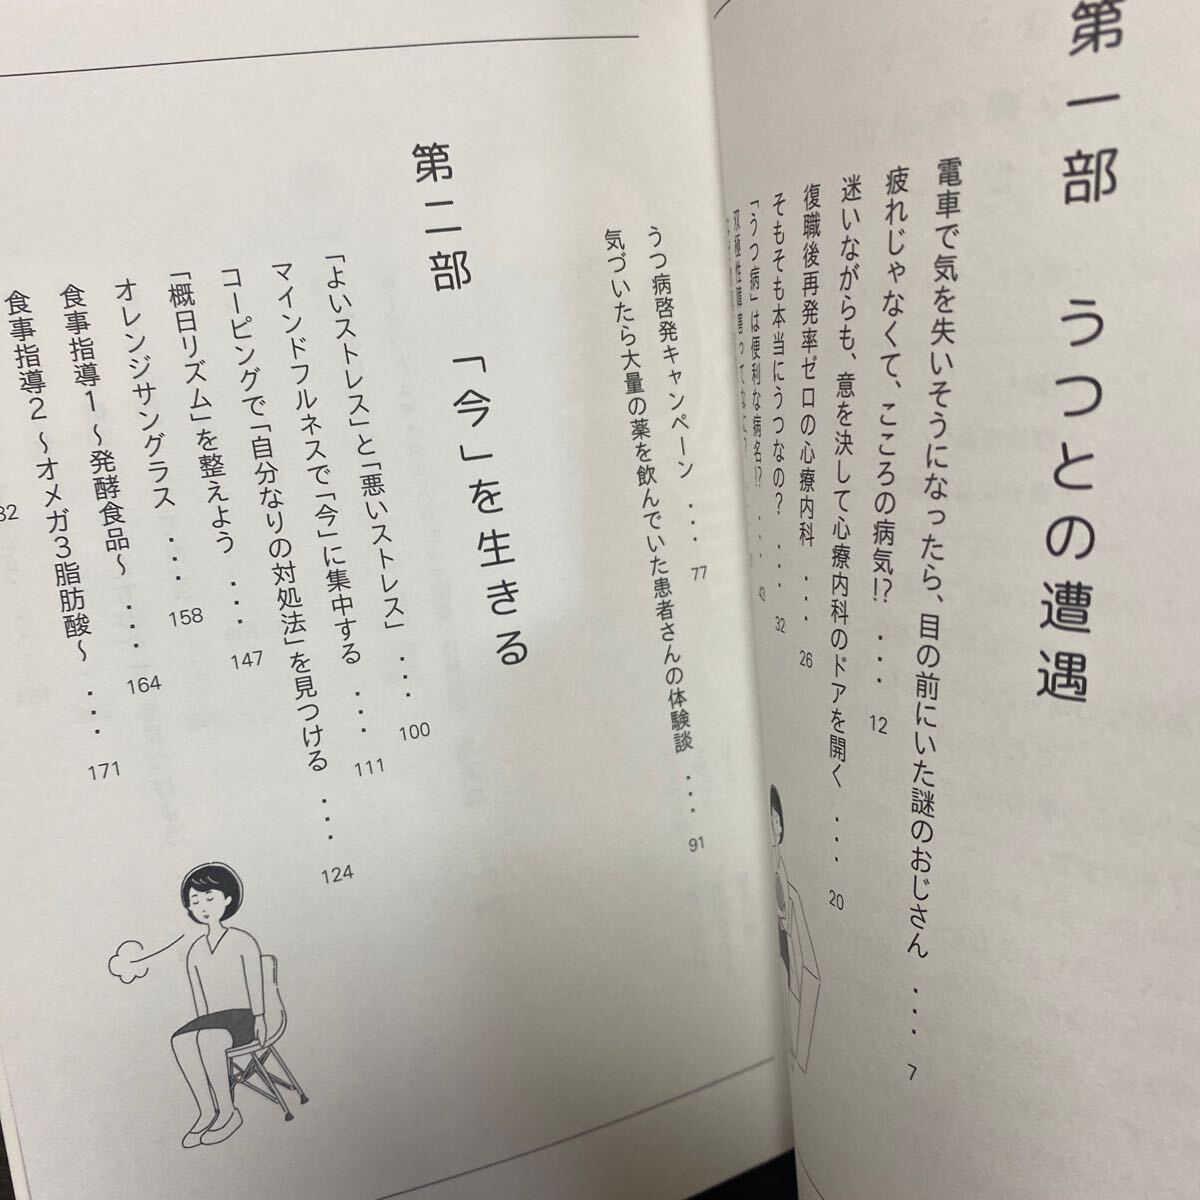 第一部 うつとの遭遇
電車で気を失いそうになったら、目の前にいた謎のおじさん ... 7
疲れじゃなくて、こころの病気!? ... 12
迷いながらも、意を決して心療内科のドアを開く ... 20
復職後再発率ゼロの心療内科 ... 26
そもそも本当にうつなの? ... 32
「うつ病」は便利な病名!? ... 43
双極性障害ってなに?
うつ病啓発キャンペーン ... 77
気づいたら大量の薬を飲んでいた患者さんの体験談 ... 91
第二部 「今」を生きる
「よいストレス」と「悪いストレス」 ... 100
マインドフルネスで「今」に集中する ... 111
コーピングで「自分なりの対処法」を見つける ... 124
「概日リズム」を整えよう ... 147
オレンジサングラス ... 158
食事指導1〜発酵食品〜 ... 164
食事指導2〜オメガ3脂肪酸〜 ... 171